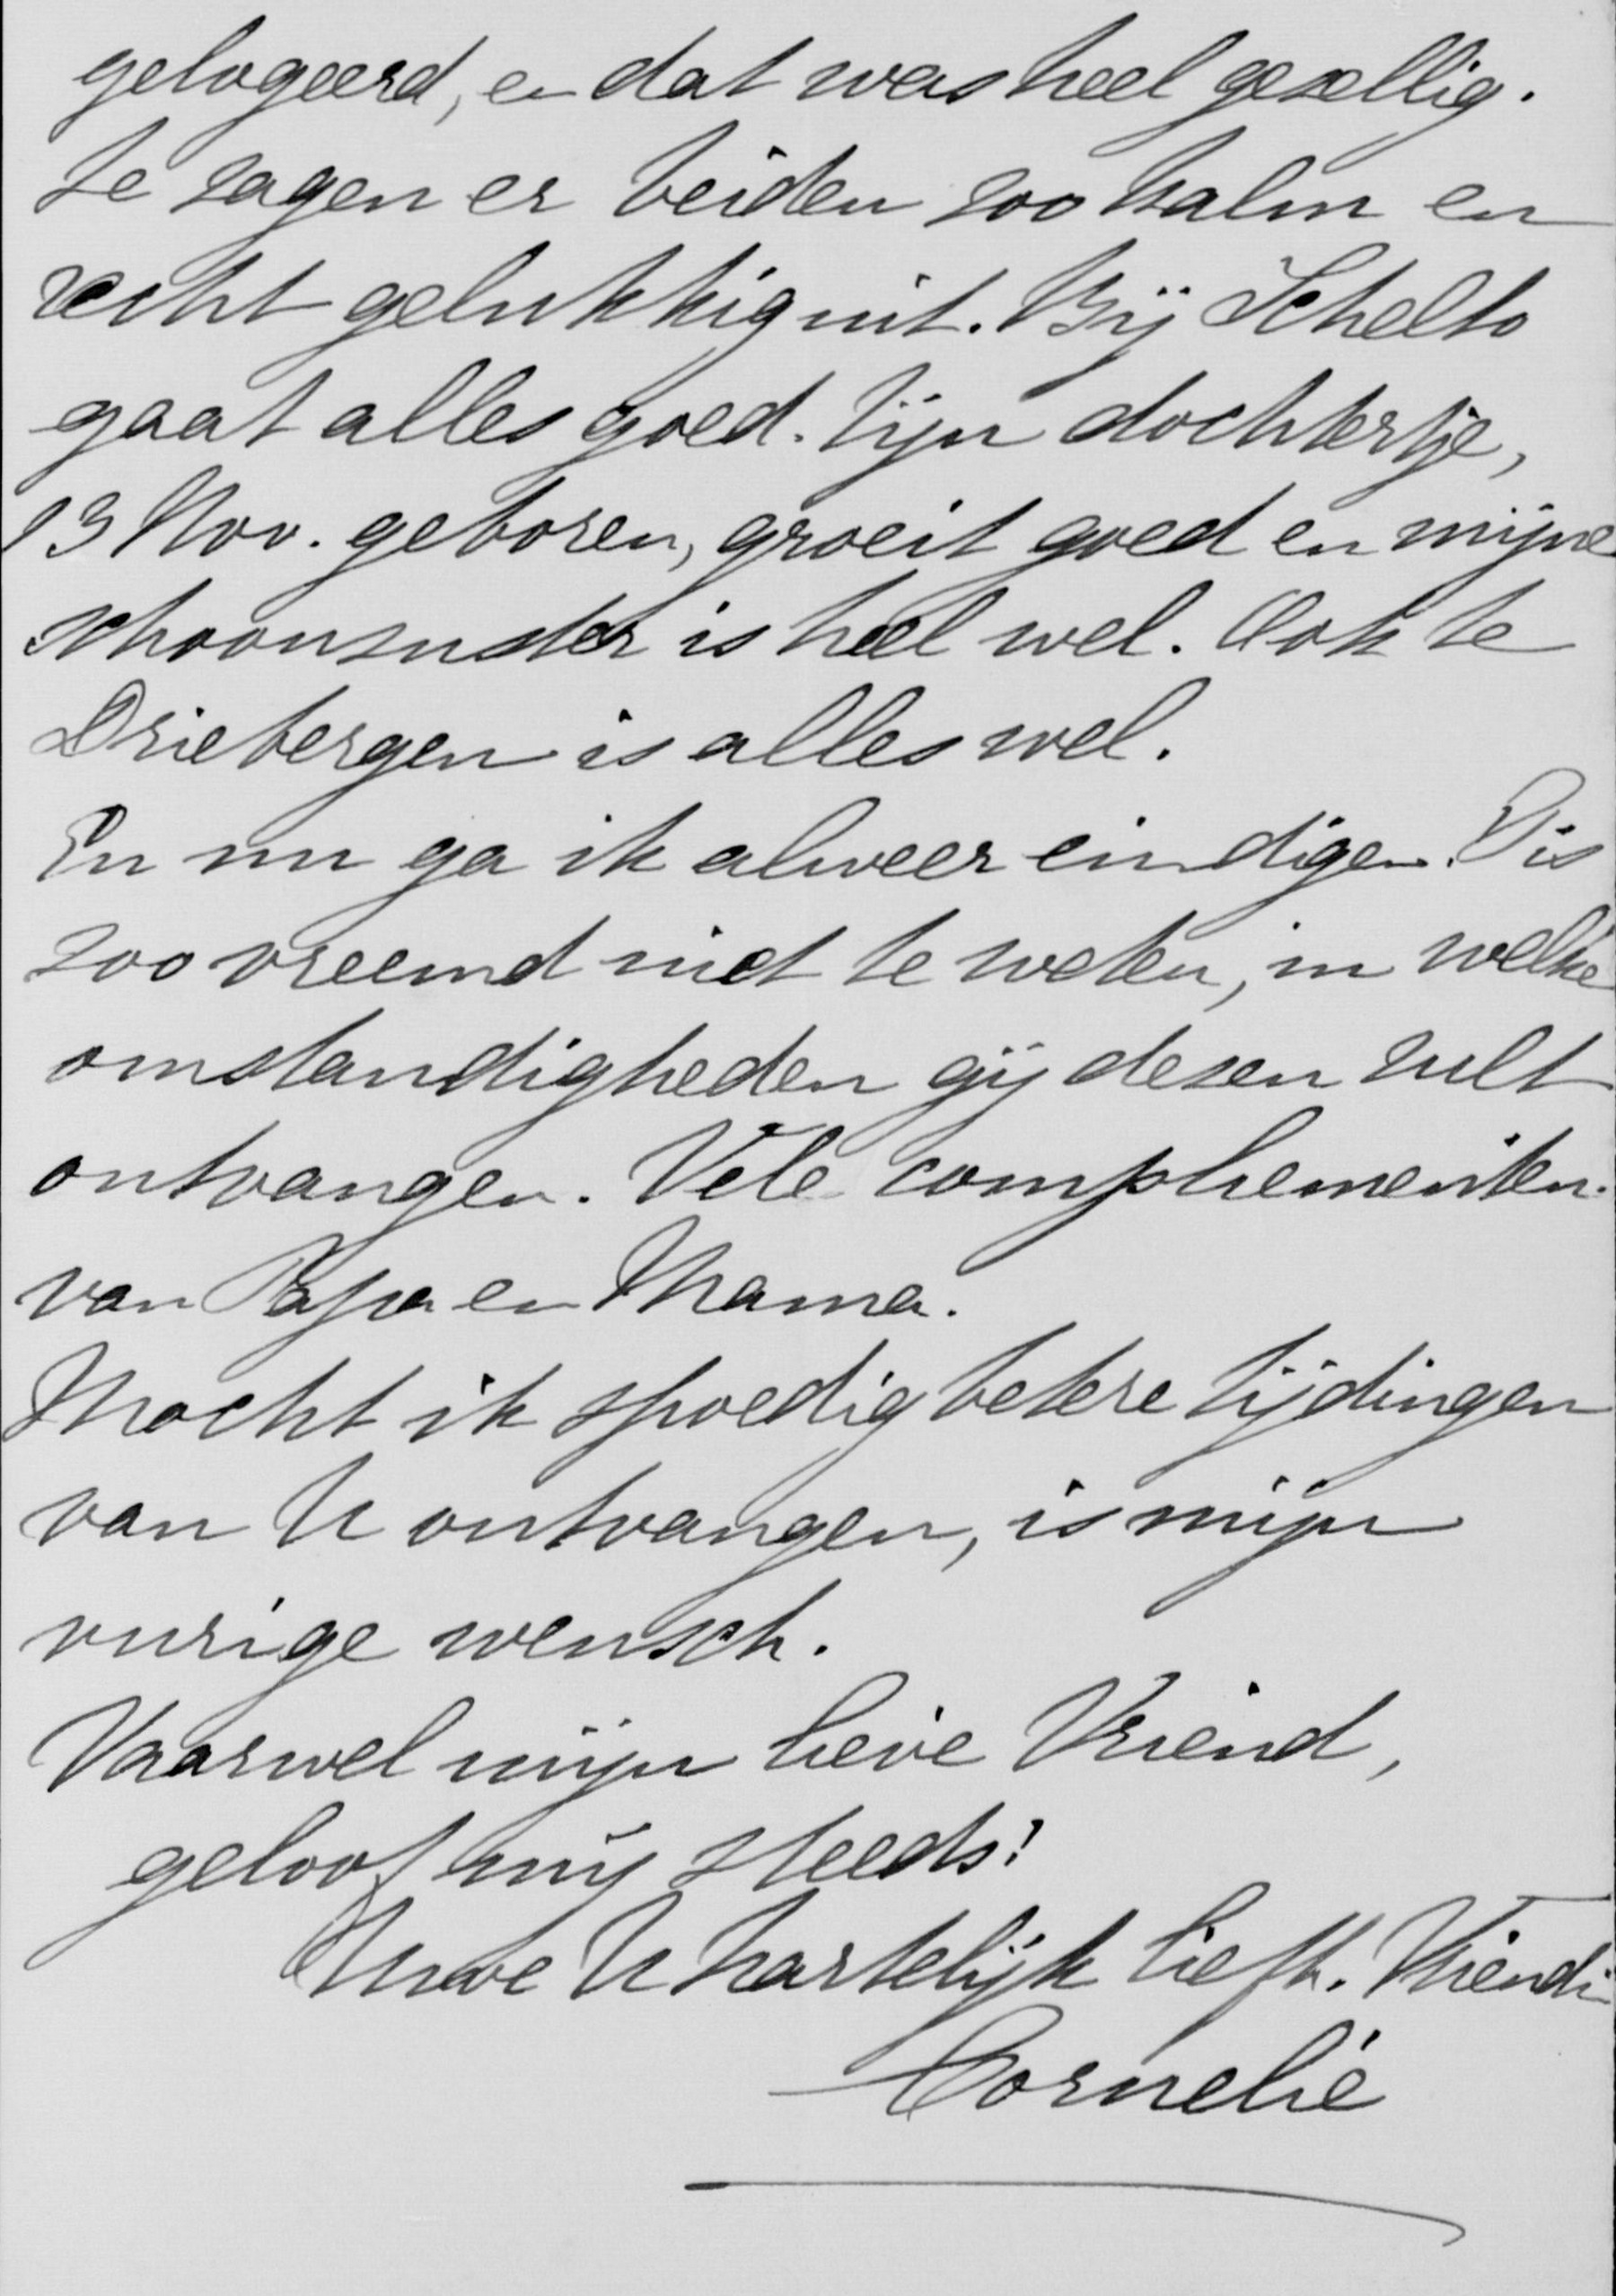 gelogeerd, en dat was heel gezellig.
Ze zagen er beiden zoo kalm en
recht gelukkig uit. Bij Schelto
gaat alles goed. Zijn dochtertje,
13 Nov. geboren, groeit goed en mijne
schoonzuster is heel wel. Ook te
Driebergen is alles wel.
En nu ga ik alweer eindigen. 't is
zoo vreemd niet te weten, in welke
omstandigheden gij dezen zult
ontvangen. Vele complimenten
van Papa en Mama.
Mocht ik spoedig betere tijdingen
van U ontvangen, is mijn
vurige wensch.
Vaarwel mijn lieve Vriend,
geloof mij steeds:
Uwe U hartelijk liefh. Vriendin
Cornelie